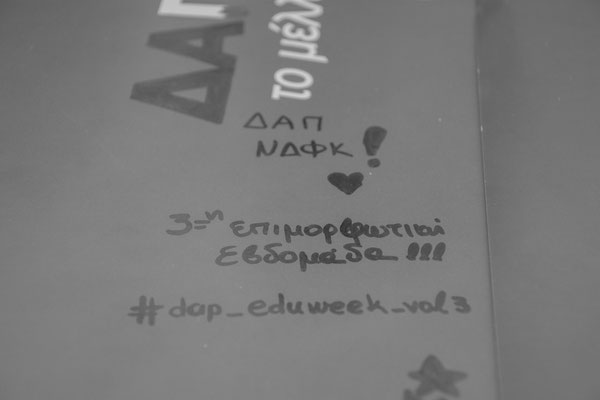 ΔΑΠ
το μέλλ
ΔΑΠ
ΝΔΦΚ!
3=η επιμορφωτική
Εβδομάδα !!!
#dap_eduweek_vol3